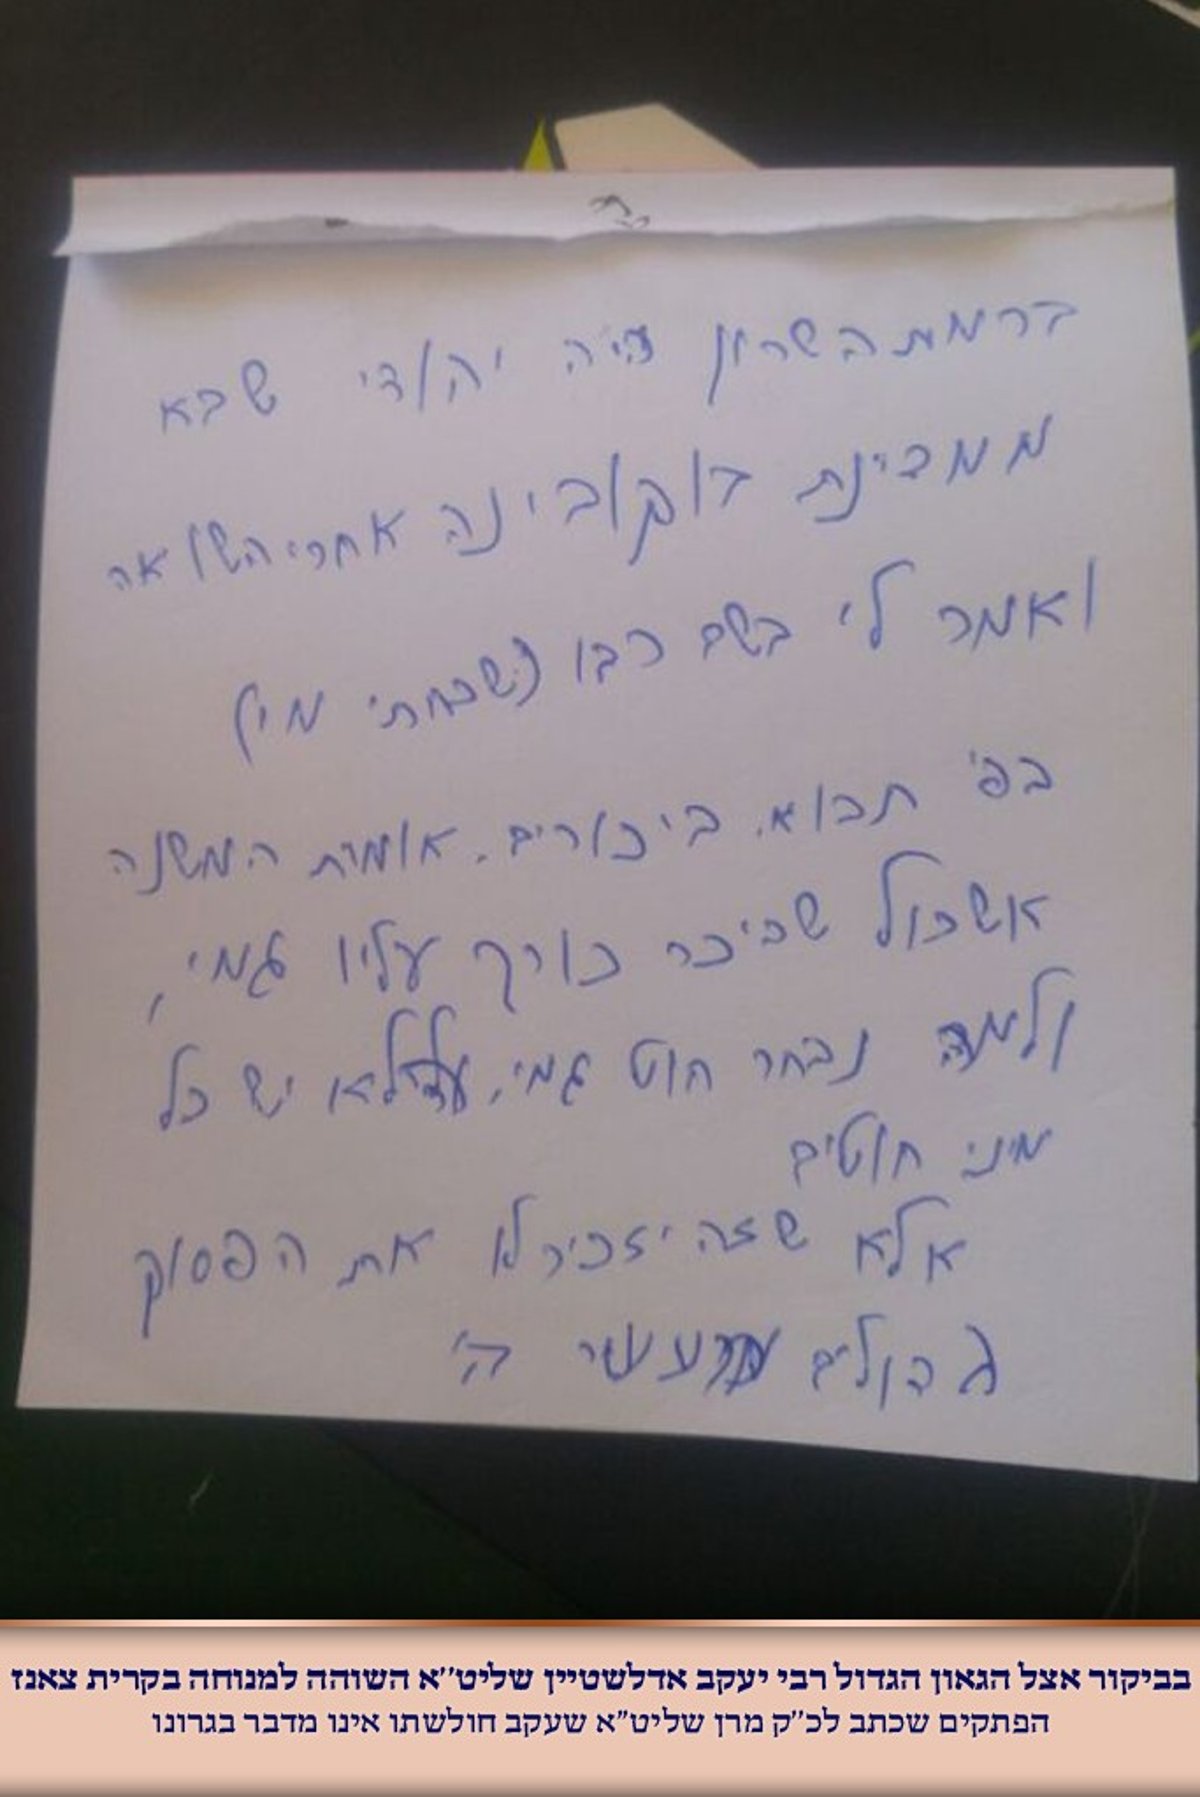 ברמת השרון היה יהודי שבא
ממדינת בוקובינה אחרי השואה
ואמר לי בשם רבו (שכחתי מיי)
בפ' תבוא. ביכורים. אומרת המשנה
אשכול שביכר כורך עליו גמי,
ולמה נבחר חוט גמי, הלא יש כל
מיני חוטים
אלא שזה יזכיר לו את הפסוק
גדולים מעשי ה'
בביקור אצל הגאון הגדול רבי יעקב אדלשטיין שליט''א השוהה למנוחה בקרית צאנז
הפתקים שכתב לכ''ק מרן שליט"א שעקב חולשתו אינו מדבר בגרונו